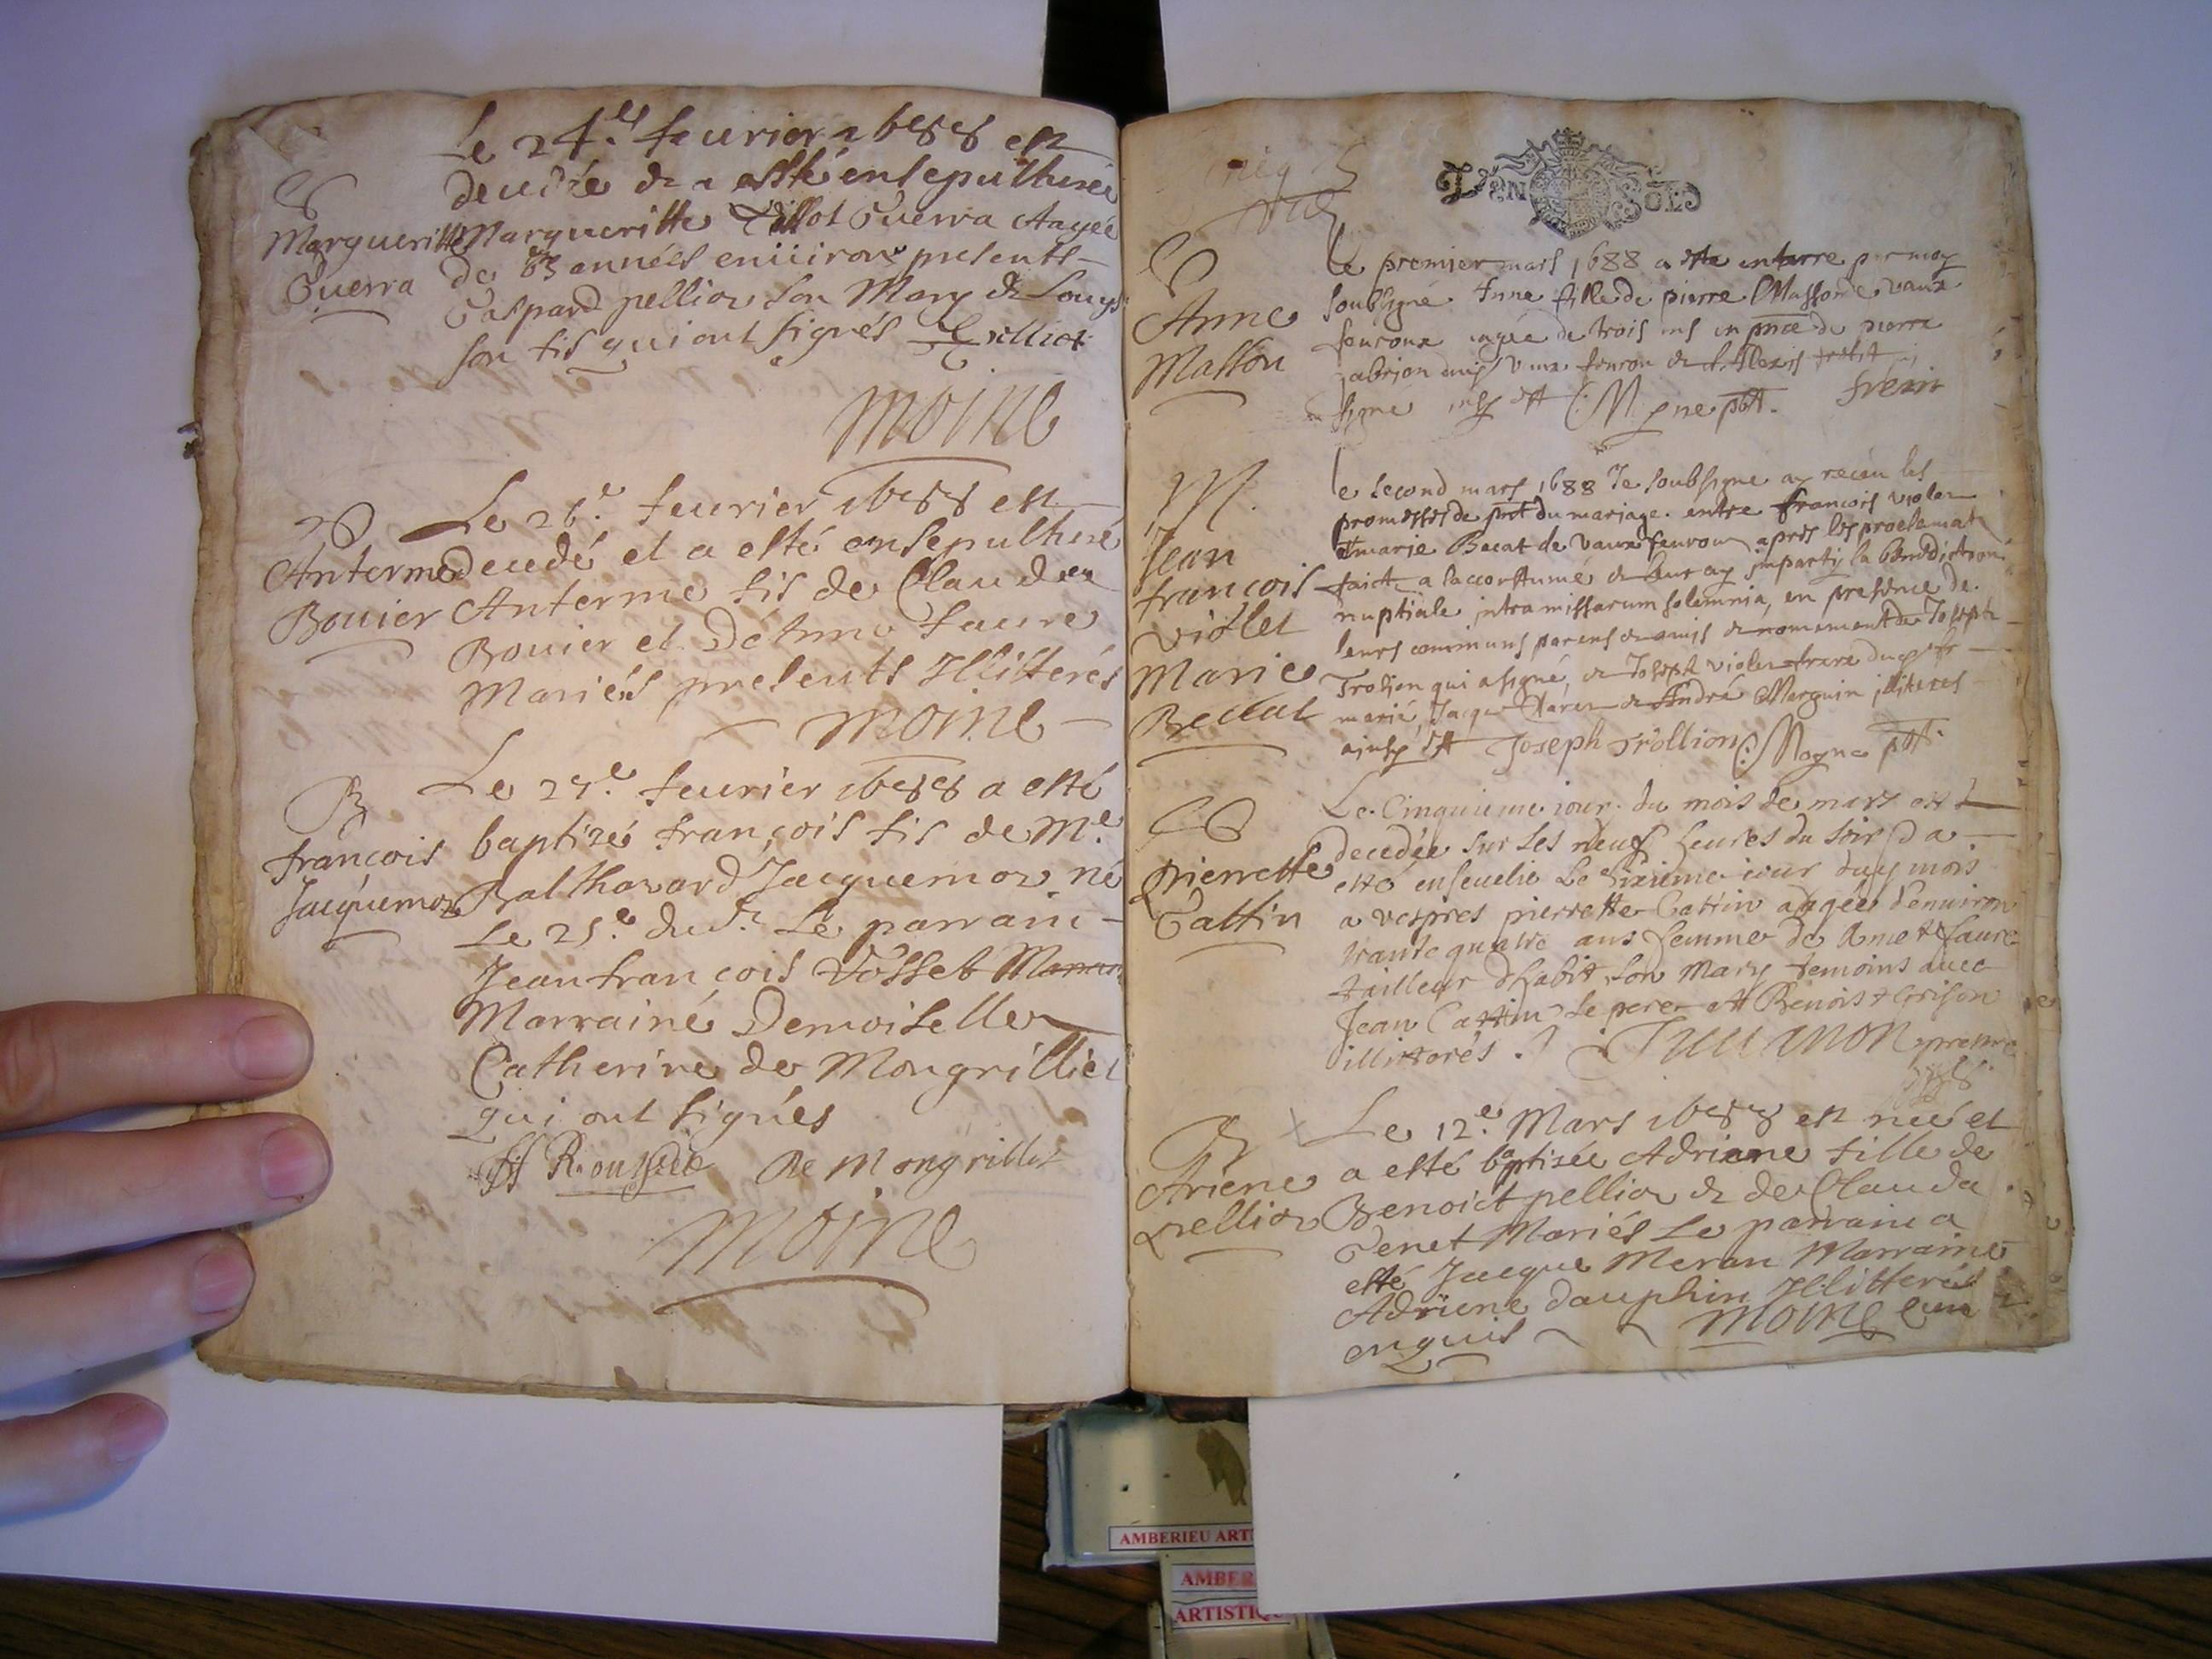 Le 24.e feurier 1688 est
decedée & a esté ensepulturée
Margueritte
Margueritte Guerra Aagée
Guerra
de années enuiron presents
Gaspard pellior son Mary & Louys
son fis qui ont signés
Moine
Le 26.e feurier 1688 est
Anterme
decedé et a esté ensepulturé
Bouier
Anterme fis de Claude
Bouier et D'Anne faure
Mariés presents Illitterés
Moine
B
Le 27.e feurier 1688 a esté
françois
baptizé françois fis de Me
Jacquemor
Balthazard Jacquemor né
Le 25.e dud. Le parrain
Jean françois Vosseb
Marraine Demoiselle
Catherine de Mongrillié
qui ont signés
De Mongrillet
Moine
DEN SOLS
Anne
Masson
le premier mars 1688 a este enterre par moy
soubsigné Anne fille de pierre Masson de vaux
feuroux agée de trois ans en pnce de pierre
M.
Jean
françois
violet
Marie
Beccat
le second mars 1688 Je soubsigne ay receu les
promesses de pnt du mariage entre françois violet
et marie Becat de vaux feuroux apres les proclamat
faict a laccoustumé & leur ay imparty la benediction
nuptiale intra missarum solemnia, en presence de
leurs communs parens & amis & nomement de Joseph
Trolion qui a signé, & Joseph violet frere dud
marié, Jacque & André Marguin illiteres
ainsy est Joseph Trollion Moyne pbt.
pierrette
Cattin
Le Cinquieme iour du mois de mars est
decedée sur les neuf heures du soir & a
esté enseuelie Le sixieme iour duy mois
a vespres pierrette Cattin aagée denuiron
trante quatre ans femme de Ame faure
tailleur dhabit son Mary temoins auec
Jean Cattin le pere et Benoist Grison
illitterés. prestre
B
Ariene
pellior
Le 12.e Mars 1688 est née et
a esté baptisée Adriane fille de
Benoict pellior & de Clauda
Genet Mariés Le parrain a
esté Jacque Meran Marraine
Adriene dauphin Illitterés
enquis Moine Cure
AMBERIEU ART
AMBER
ARTISTIQ